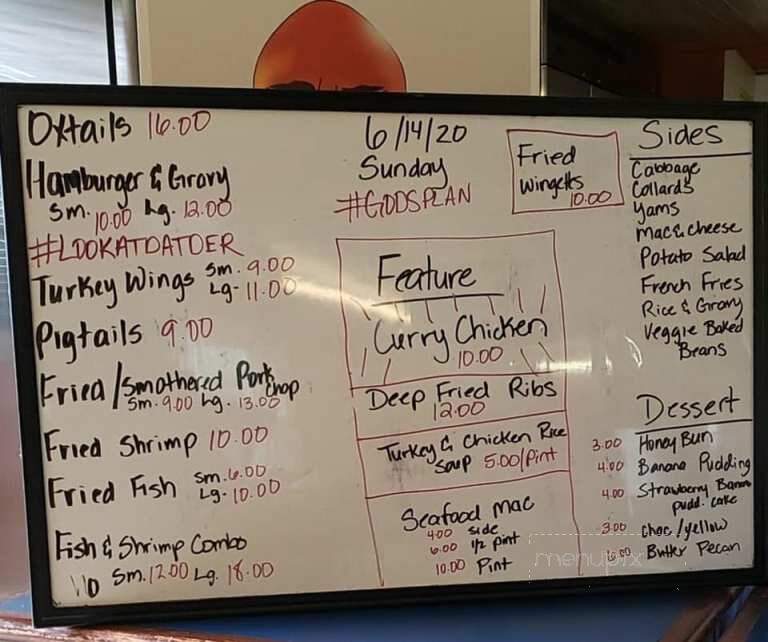 Oxtails 16.00
Hamburger & Gravy
Sm. 10.00 Lg. 12.00
#LOOKATDATDER
Turkey Wings Sm. 9.00
Lg- 11.00
Pigtails 9.00
Fried/Smothered Pork Chop
Sm. 9.00 Lg. 13.00
Fried Shrimp 10.00
Fried Fish Sm. 6.00
Lg- 10.00
Fish & Shrimp Combo
Sm. 12.00 Lg. 18.00
6/14/20
Sunday
#GODSPLAN
Feature
Curry Chicken
10.00
Deep Fried Ribs
12.00
Turkey & Chicken Rice
Soup 5.00/Pint
Seafood mac
4.00 side
6.00 1/2 pint
10.00 Pint
Fried
Wingetts
10.00
Sides
Cabbage
Collards
Yams
Mac & Cheese
Potato Salad
French Fries
Rice & Gravy
Veggie Baked
Beans
Dessert
3.00 Honey Bun
4.00 Banana Pudding
4.00 Strawberry Banana
pudd. cake
3.00 choc/yellow
6.00 Butter Pecan
menupix